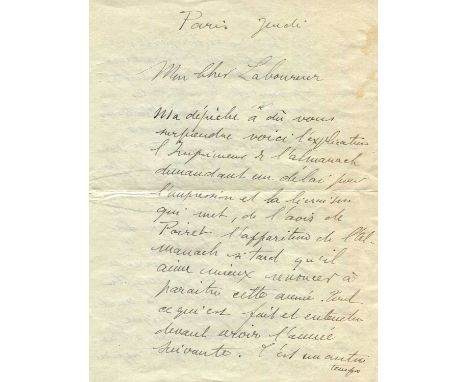 Paris Jeudi
Mon cher Laboureur
Ma dépêche a dû vous
surprendre voici l'explication
l'imprimeur de l'almanach
demandant un délai pour
l'impression et la livraison
qui met, de l'avis de
Poiret l'apparition de l'al-
manach si tard qu'il
aime mieux renoncer à
paraître cette année. Tout
ce qui est fait et entendu
devant servir l'année
suivante. C'est un autre